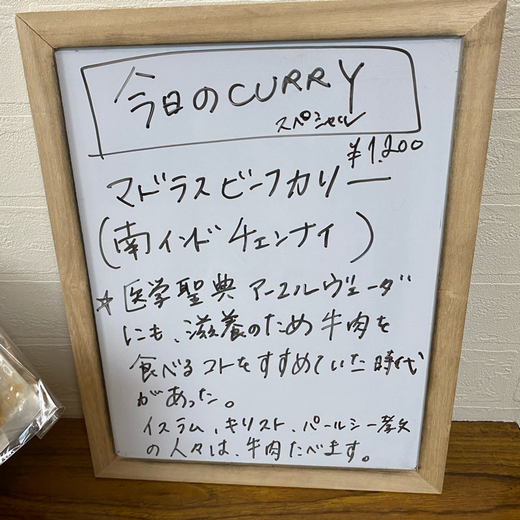 今日のCURRY
スペシャル
¥1,200
マドラスビーフカリー
(南インドチェンナイ)
☆医学聖典アーユルヴェーダ
にも、滋養のため牛肉を
食べるコトをすすめていた時代
があった。
イスラム、キリスト、パールシー教
の人々は、牛肉たべます。